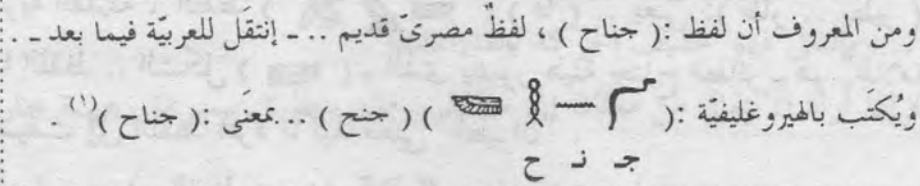 ومن المعروف أن لفظ :( جناح ) ، لفظٌ مصرىّ قديم .. ـ إنتقَل للعربيّة فيما بعد ـ .
ويُكتَب بالهيروغليفيّة :( 𓆓 𓈖 𓎛 𓆃 ) ( جنح ) ... بمعنَى :( جناح )(١) .
جـ نـ ح